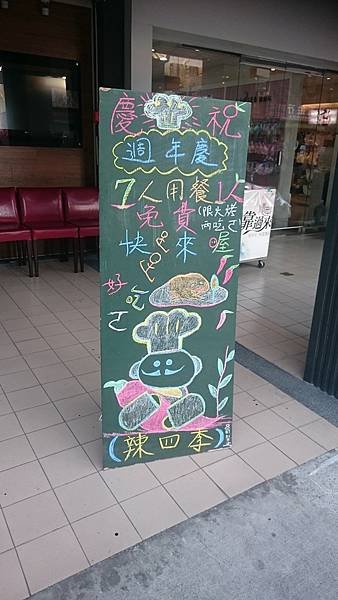 慶祝
週年慶
7人用餐1人
免費(限大烤
肉吃ㄛ)
快來喔
好
吃
ㄛ
(辣四季)
靠過來